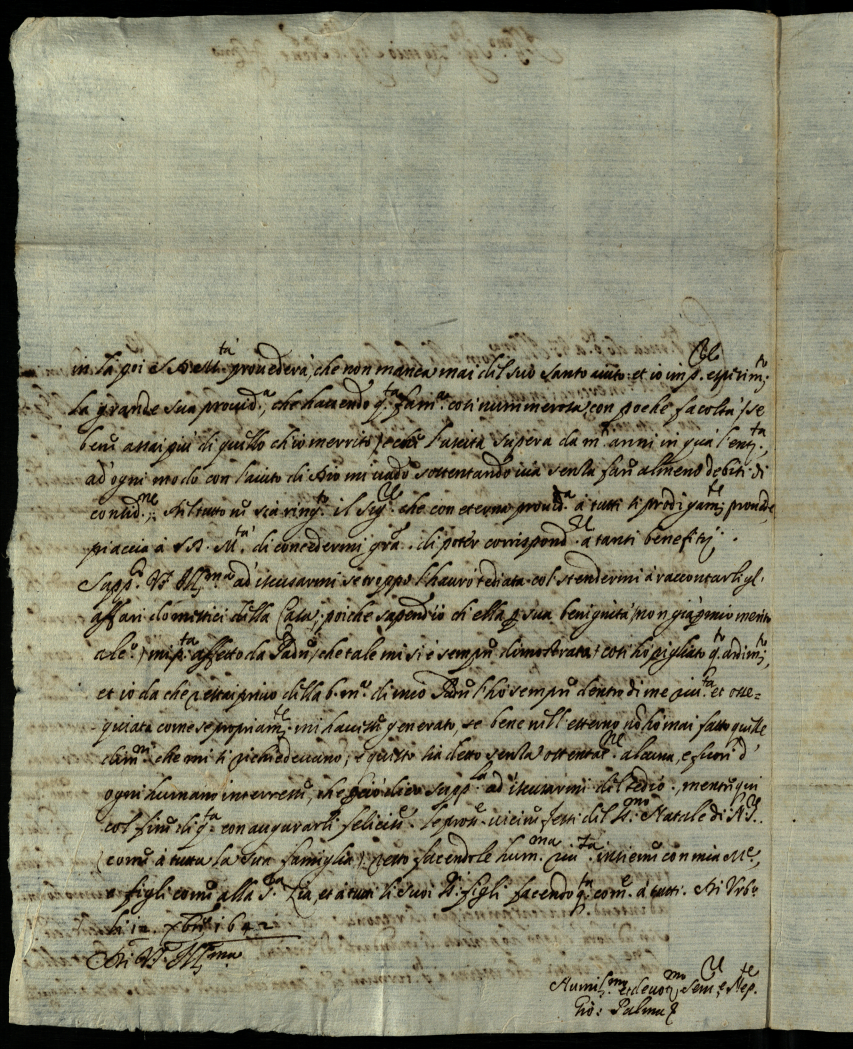 in là poi S. D. M.tà provederà, che non manca mai del suo santo aiuto: et io in p. esperim.to
la grande sua provid.a, che havendo q.ta fam.a così numerosa, con poche facoltà, se
bene assai più di quello ch'io merito, e che l'uscita supera da m.ti anni in quà l'ent.ta,
ad ogni modo con l'aiuto di Dio mi vado sostentando senza fare almeno debiti di
consid.ne; del tutto ne sia ring.to il Sig.re che con eterna provid.a à tutti li prodigam.te provede,
piaccia à S. D. M.tà di concedermi gra. di poter corrispond.re à tanti benefitij.
Supp.co V. S. Ill.ma ad iscusarmi se troppo l'havrò tediata col stendermi à raccontarli gl'
affari domestici della Casa; poiche sapend'io ch'ella p sua benignità, non già p mio merito
affetto da Padre, che tale mi si è sempre dimostrata, così hò pigliato q.to ardim.to,
et io da che restai privo della b. m. di mio Padre l'hò sempre dentro di me riv.ta et osse=
quiata come se propriam.te mi havesse generato, se bene nell'esterno nõ hò mai fatto quelle
che mi si richiedevano; e questo hà detto senza ostentat.ne alcuna, e fuori d'
ogni humano interesse, che perciò dico supp.la ad iscusarmi del tedio, mentre qui
col fine di q.ta con augurarli felici le pros.e vicine feste del S.mo Natale di N. S.
(come à tutta la sua famiglia) resto facendole hum.ma riv.ta insieme con mia M.e,
e figli come alla S.ra Zia, et à tutti li suoi SS. figli facendo q.ta com.e à tutti. Di Urb.o
li 12 Xbre 1692
Di V. S. Ill.ma
Humiliss.mo et devot.mo Ser.re e Nep.te
Gio: Palma